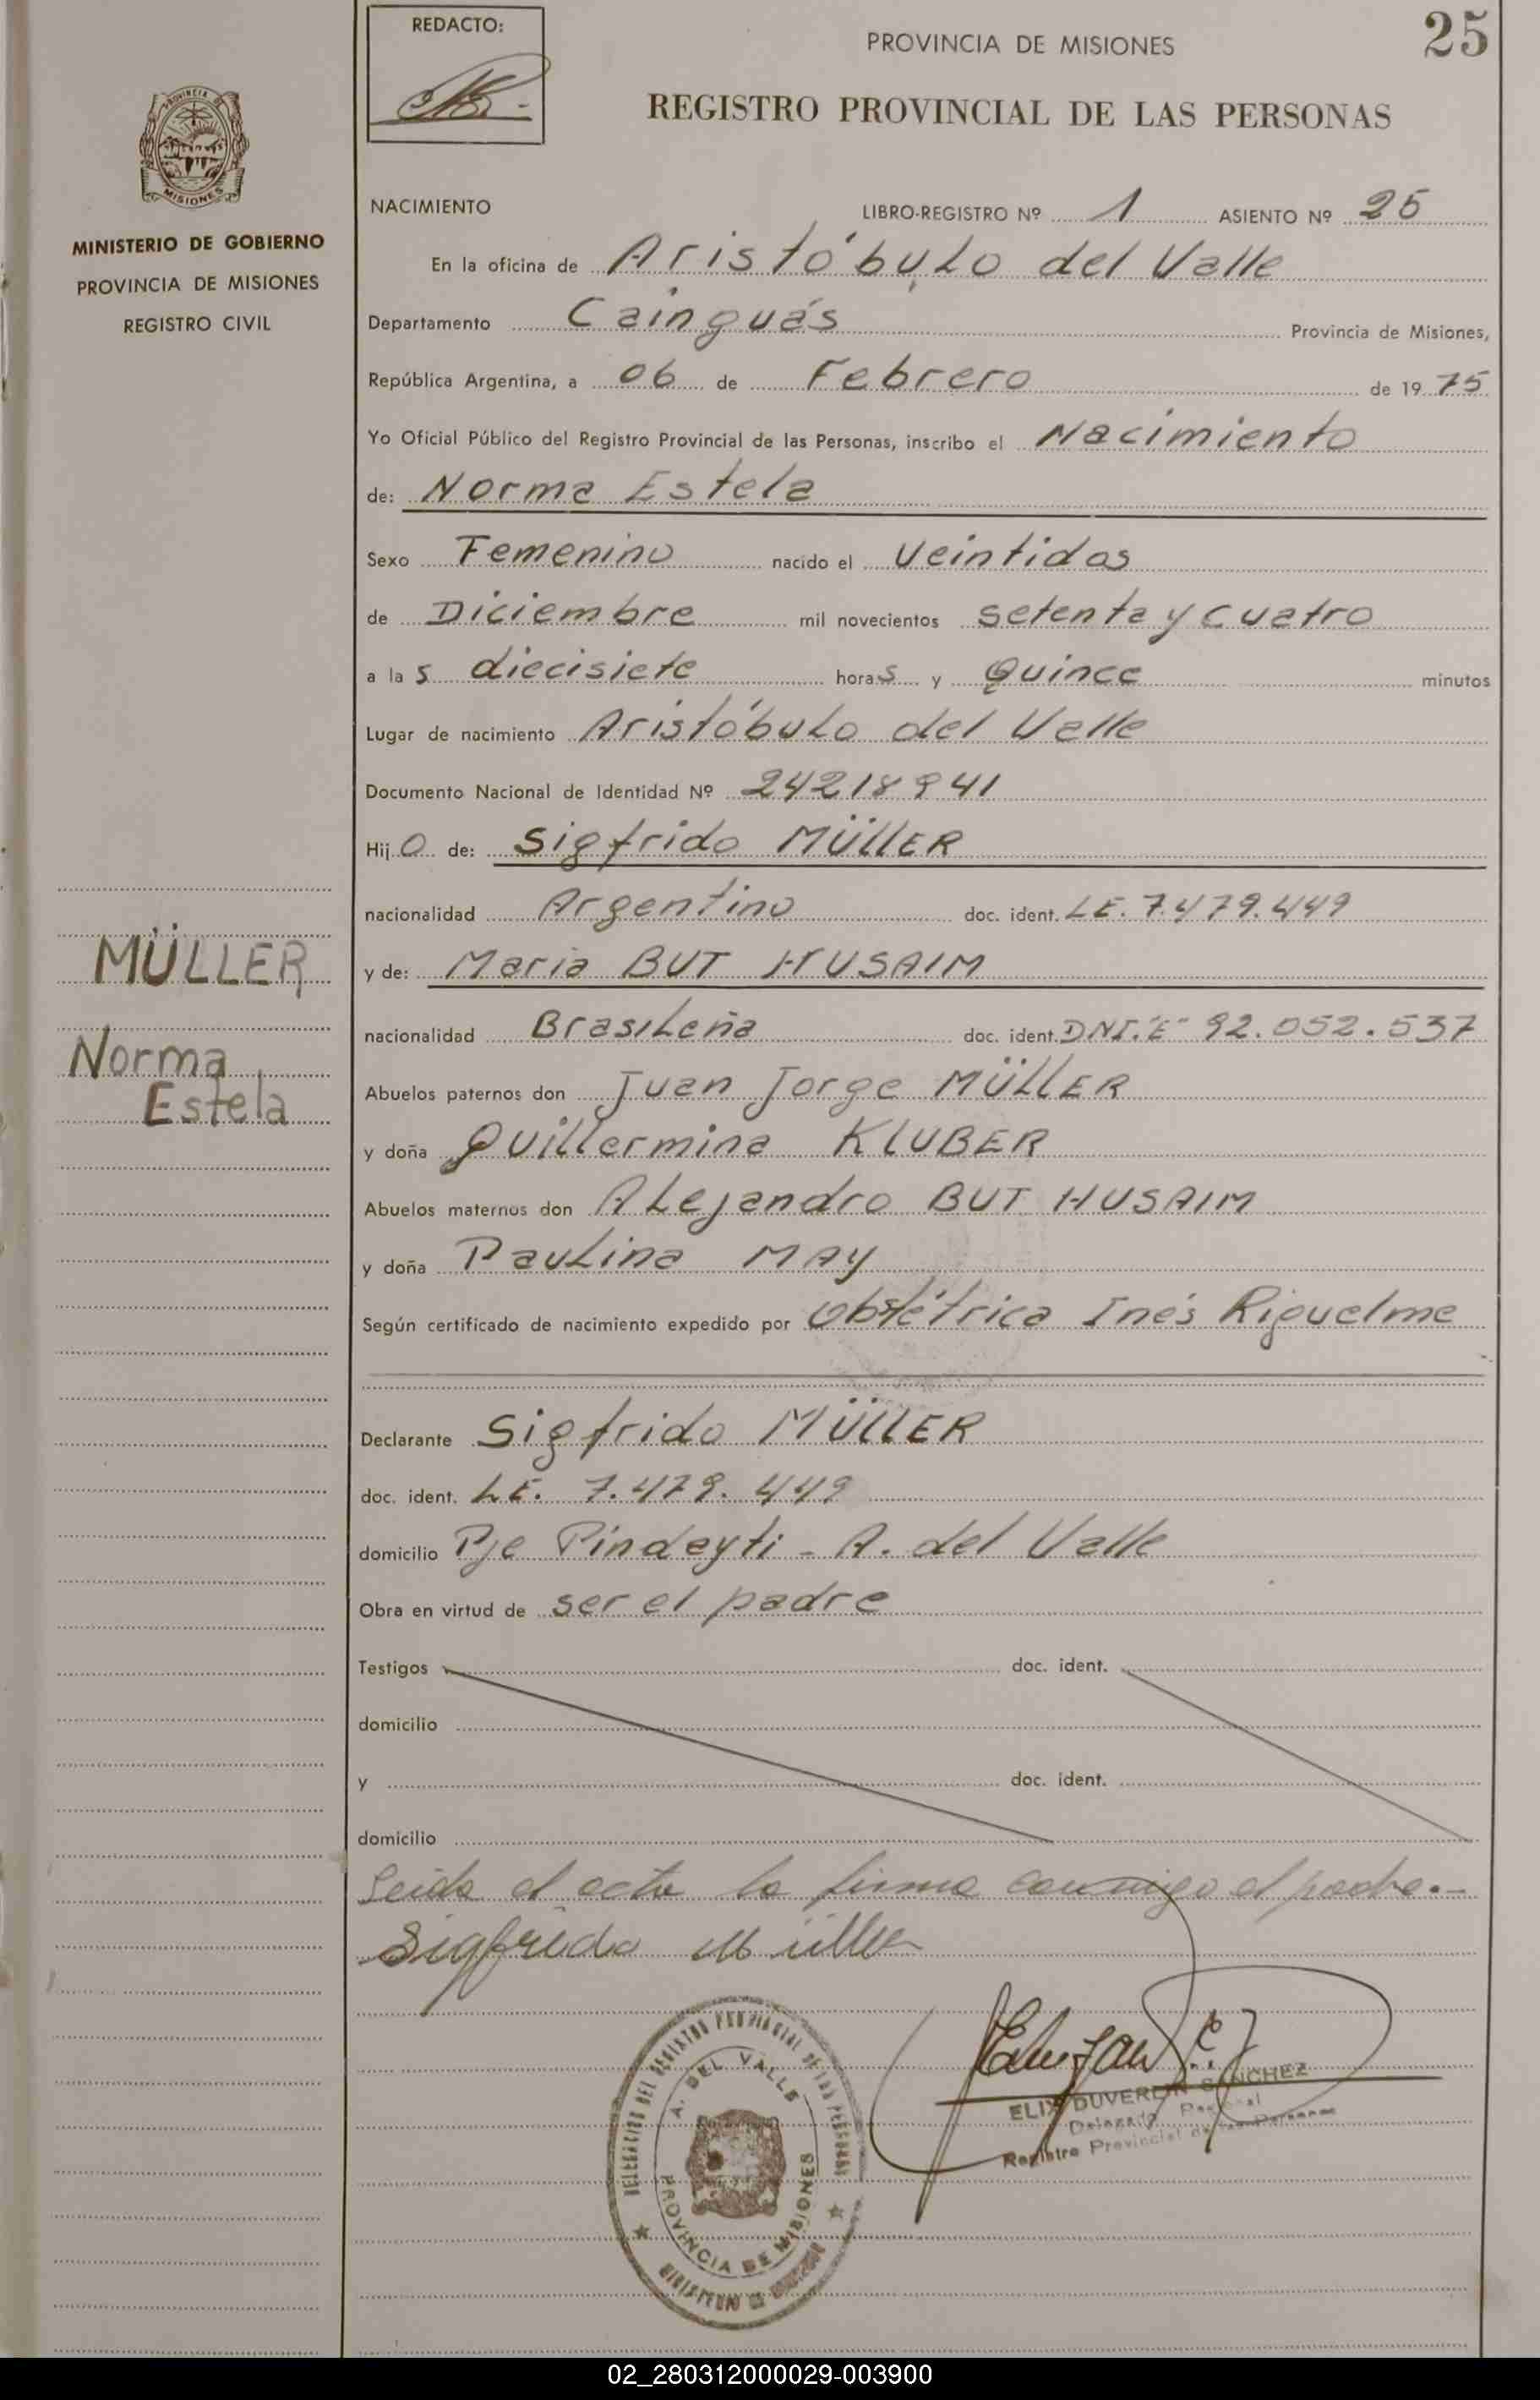 REDACTO:
PROVINCIA DE MISIONES
25
REGISTRO PROVINCIAL DE LAS PERSONAS
PROVINCIA DE
MISIONES
MINISTERIO DE GOBIERNO
PROVINCIA DE MISIONES
REGISTRO CIVIL
NACIMIENTO LIBRO-REGISTRO Nº 1 ASIENTO Nº 25
En la oficina de Aristóbulo del Valle
Departamento Cainguás Provincia de Misiones,
República Argentina, a 06 de Febrero de 1975
Yo Oficial Público del Registro Provincial de las Personas, inscribo el Nacimiento
de: Norma Estela
Sexo Femenino nacido el Veintidos
de Diciembre mil novecientos setenta y cuatro
a las diecisiete horas y Quince minutos
Lugar de nacimiento Aristóbulo del Valle
Documento Nacional de Identidad Nº 24218941
Hijo de: Sigfrido MÜLLER
nacionalidad Argentino doc. ident. LE. 7.479.449
MÜLLER
y de: Maria BUT HUSAIM
nacionalidad Brasileña doc. ident. DNI."E" 92.052.537
Norma
Estela
Abuelos paternos don Juan Jorge MÜLLER
y doña Guillermina KLUBER
Abuelos maternos don Alejandro BUT HUSAIM
y doña Paulina MAY
Según certificado de nacimiento expedido por Obstétrica Inés Riquelme
Declarante Sigfrido MÜLLER
doc. ident. LE. 7.479.449
domicilio Pje Pindayti - A. del Valle
Obra en virtud de ser el padre
Testigos doc. ident.
domicilio
y doc. ident.
domicilio
Leida el acta la firma conmigo el padre.-
Sigfrido Müller
DELEGACION DEL REGISTRO PROVINCIAL DE LAS PERSONAS
A. DEL VALLE
PROVINCIA DE MISIONES
MINISTERIO DE GOBIERNO
ELIX DUVERLIN SANCHEZ
Delegado
Registro Provincial de las Personas
02_280312000029-003900